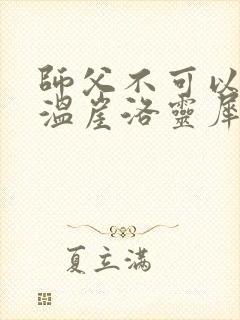 師父不可以
溫崖洛靈犀
夏立滿